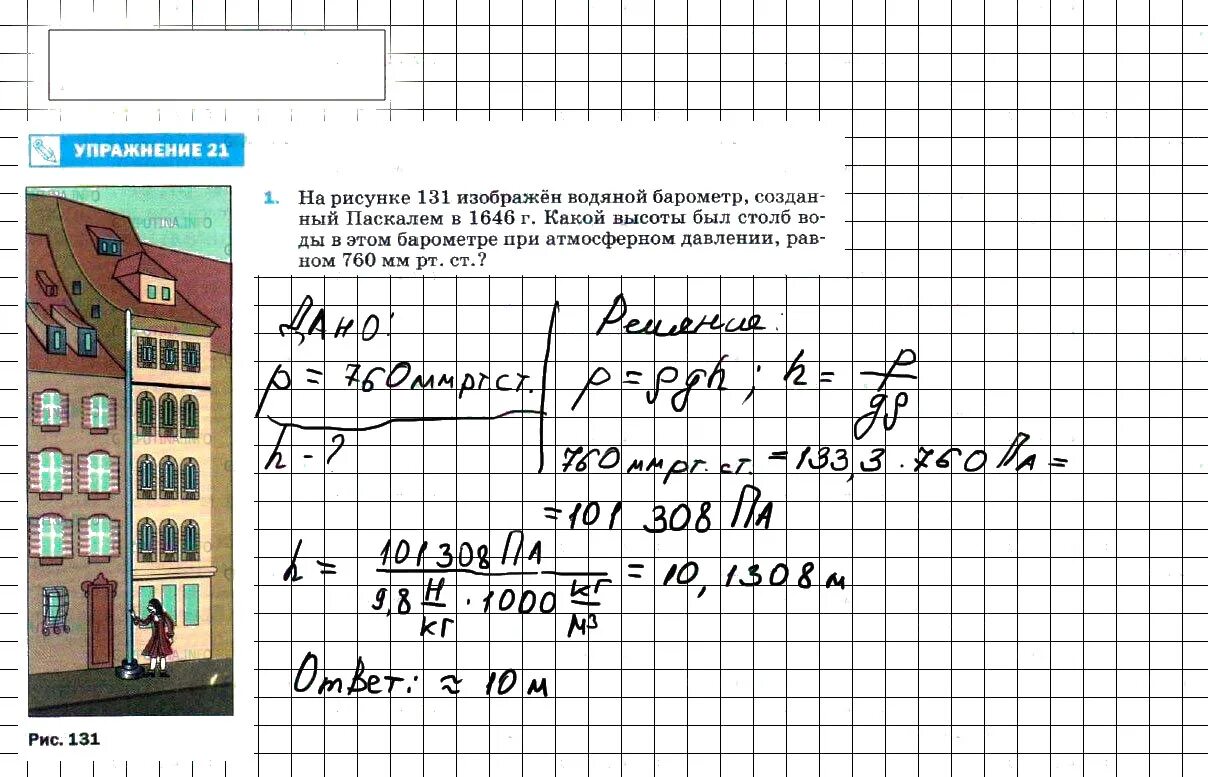 УПРАЖНЕНИЕ 21
1. На рисунке 131 изображён водяной барометр, создан-
ный Паскалем в 1646 г. Какой высоты был столб во-
ды в этом барометре при атмосферном давлении, рав-
ном 760 мм рт. ст.?
Дано:
p = 760 мм рт ст.
h - ?
Решение:
p = ρgh ; h = p/gρ
760 мм рт. ст. = 133,3 · 760 Па =
= 101 308 Па
h = 101308 Па / 9,8 Н/кг · 1000 кг/м³ = 10,1308 м
Ответ: ≈ 10 м
Рис. 131